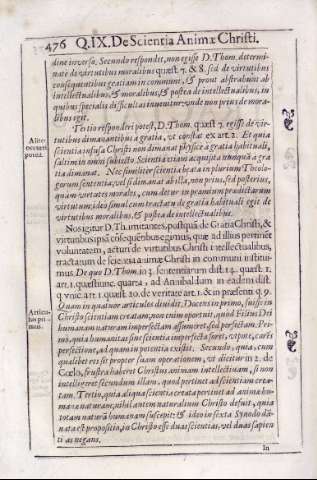 476 Q.IX. De Scientia Animæ Christi.
dine inverso. Secundo respondit, non egisse D. Thom. determi-
nate de virtutibus moralibus quæst. 7. & 8. sed de virtutibus
consequentibus gratiam in communi, & prout abstrahunt ab
intellectualibus, & moralibus, & postea de intellectualibus, in
quibus specialis difficultas invenitur, unde non prius de mora-
libus egit.
Tertio responderi potest, D. Thom. quæst. 7. egisse de vir-
tutibus dimanantibus à gratia, ut constat ex art. 2. Et quia
scientia infusa Christi non dimanat physicè à gratia habituali,
saltim in omni subiecto. Scientia etiam acquisita nunquã à gra-
tia dimanat. Nec similiter scientia beata in plurium Totolo-
gorum sententia, vel si dimanat ab illa, non prius, sed posterius,
quam virtutes morales, cum detur in præmium prædictarum
virtutum; ideo simul cum tractatu de gratia habituali egit de
virtutibus moralibus, & postea de intellectualibus.
Nos igitur D. Th. imitantes, postquã de Gratia Christi, &
virtutibus ipsã cõsequẽtibus egimus, quæ ad illius pertinẽt
voluntatem, acturi de virtutibus Christi intellectualibus,
tractatum de scientia animæ Christi in communi institui-
mus. De quo D. Thom. in 3. sententiarum dist. 14. quæst. 1.
art. 1. quæstiunc. quarta, ad Annibaldum in eadem dist.
q. unic. art. 1. quæst. 20. de veritate art. 1. & in præsenti q. 9.
Quam in quatuor articulos dividit. Docens in primo, fuisse in
Christo scientiam creatam, non enim oportuit, quod Filius Dei
humanam naturam imperfectam assumeret sed perfectam. Pri-
mò, quia humanitas sine scientia imperfecta foret, utpote, carẽs
perfectione, ad quam in potentia existit. Secundo, quia, cum
quælibet res sit propter suam operationem, ut dicitur in 2. de
Cœlo, frustra haberet Christus animam intellectivam, si non
intelligeret secundum illam, quod pertinet ad scientiam crea-
tam. Tertio, quia aliqua scientia creata pertinet ad animæ hu-
manæ naturam; nihil autem naturalium Christo defuit, quia
totam naturã humanam suscepit; & ideo in sexta Synodo dã-
nata est propositio, in Christo esse duas scientias, vel duas sapien-
tias negans.
In
Articu-
lus pri-
mus.